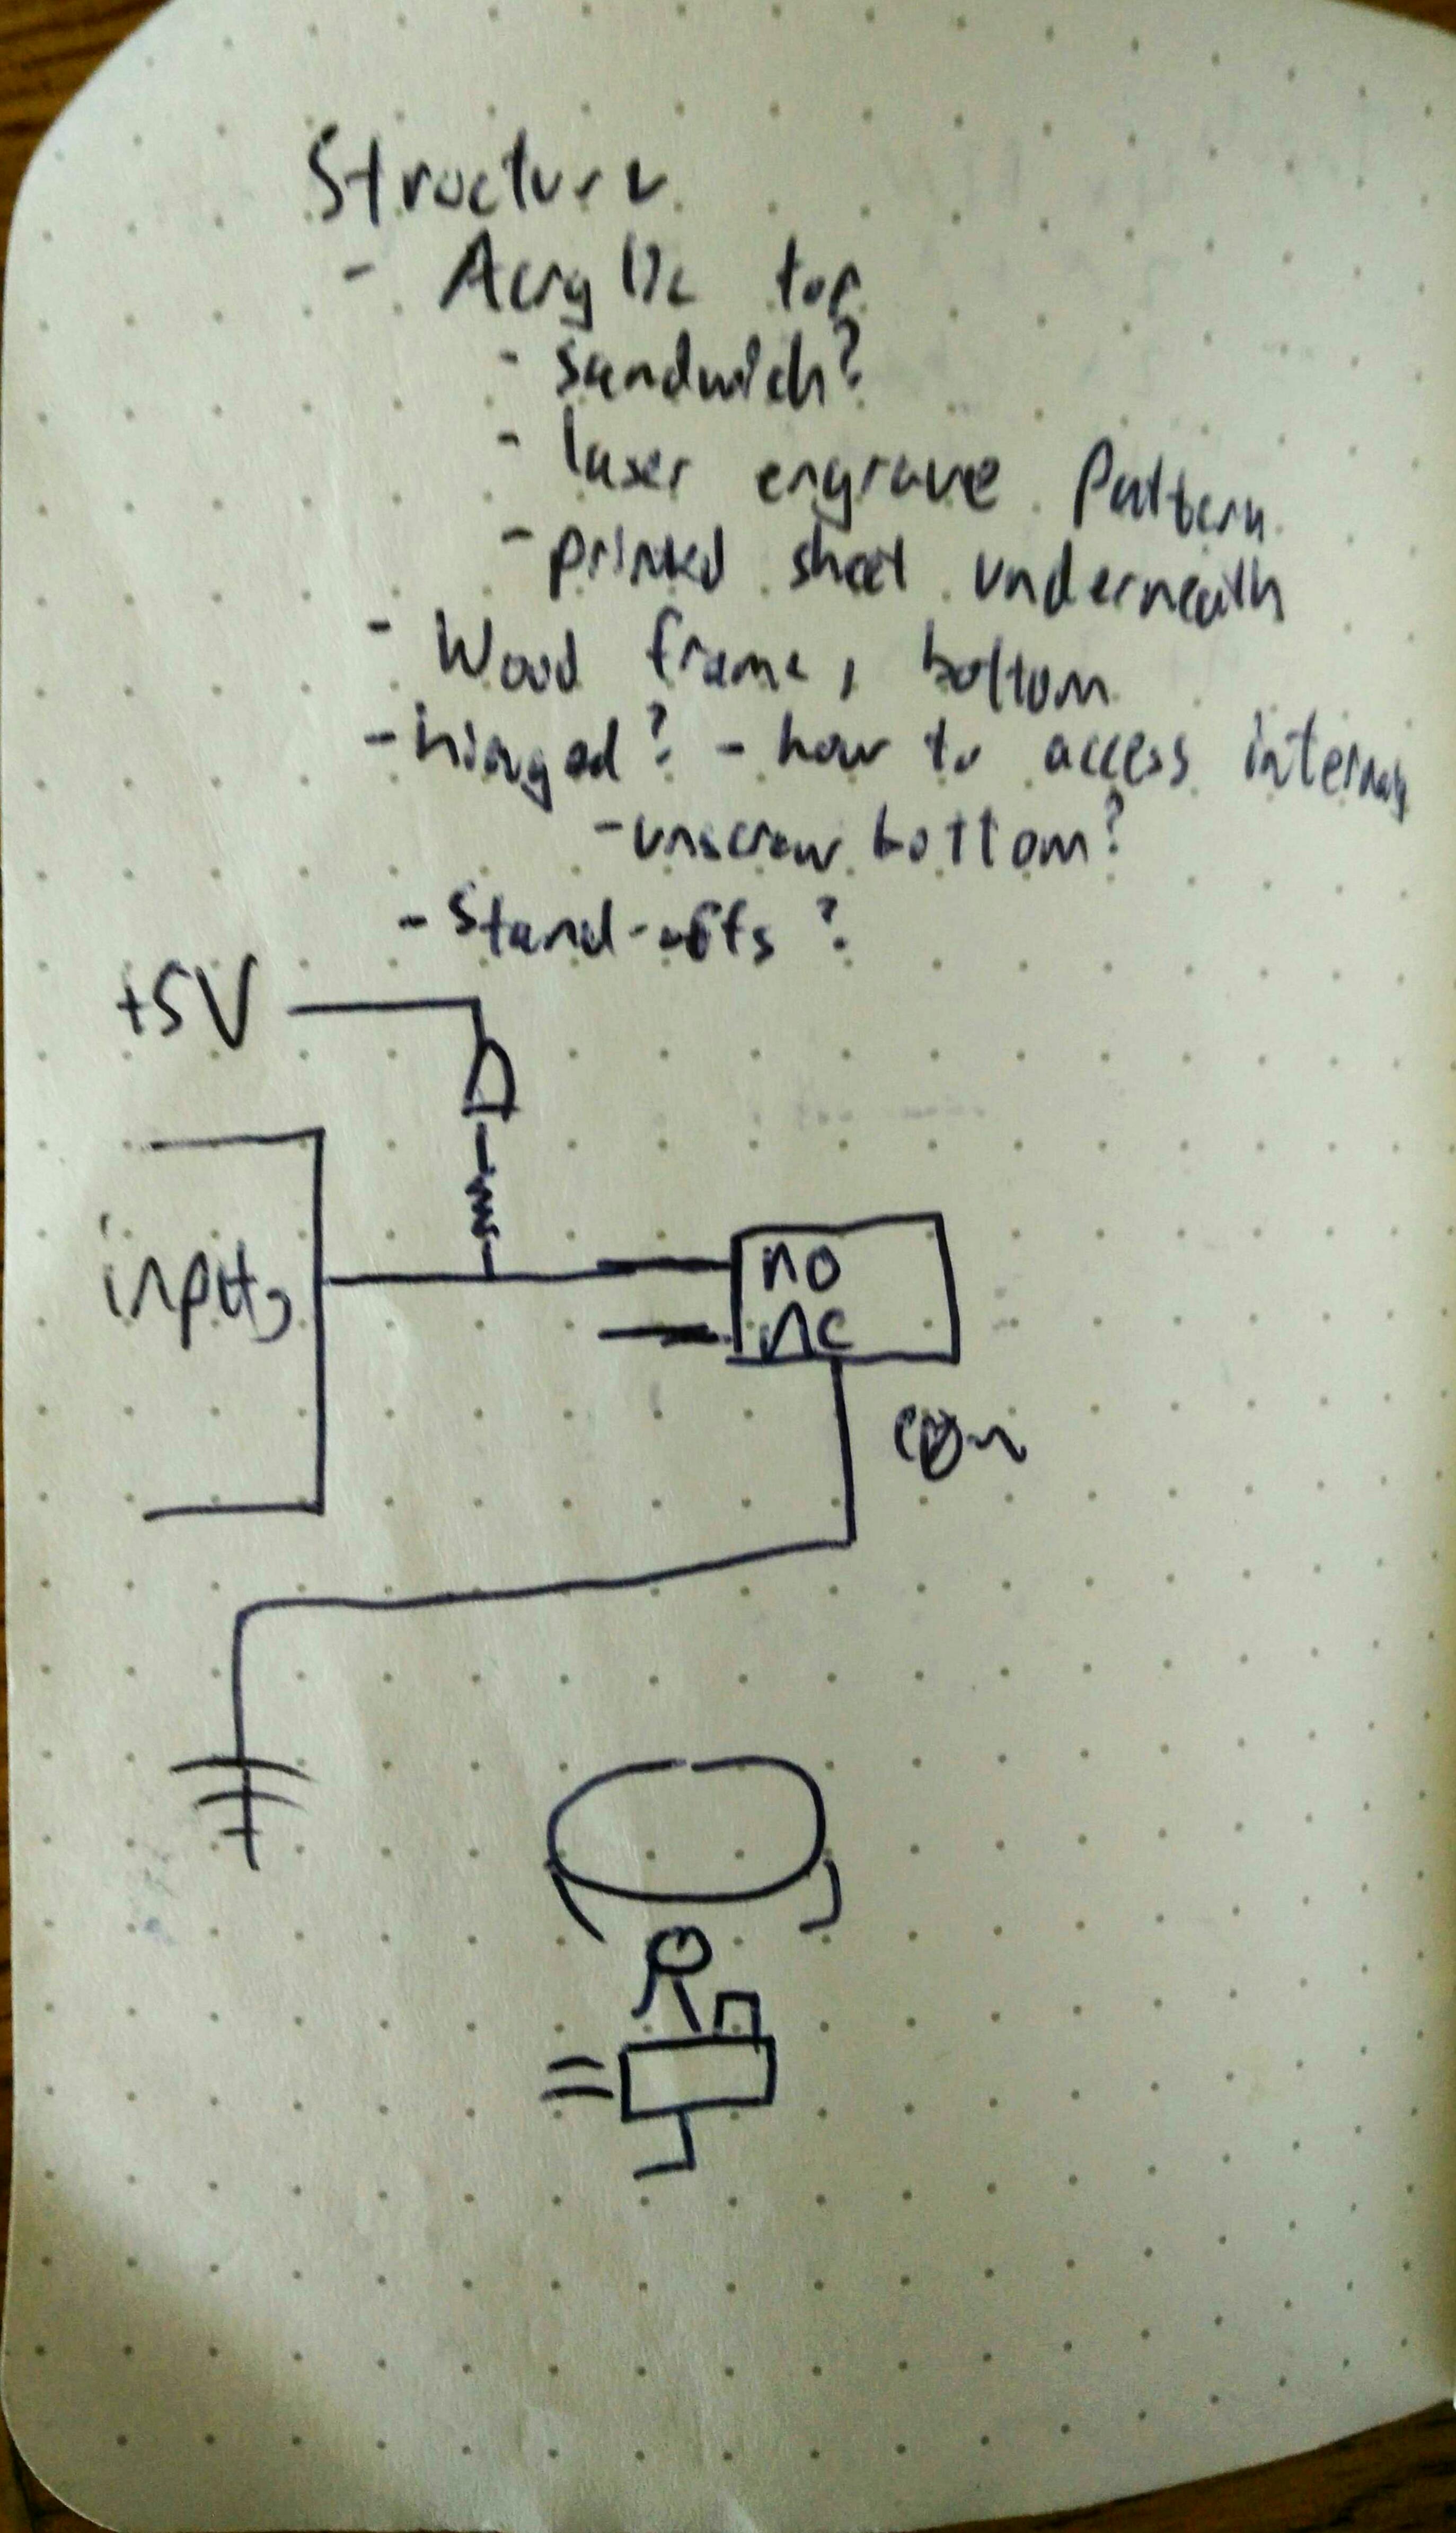 Structure
- Acrylic top
- sandwich?
- laser engrave pattern
- printed sheet underneath
- Wood frame, bottom
- hinged? - how to access internals
- unscrew bottom?
- Stand-offs?
+5V
inputs
no
nc
com